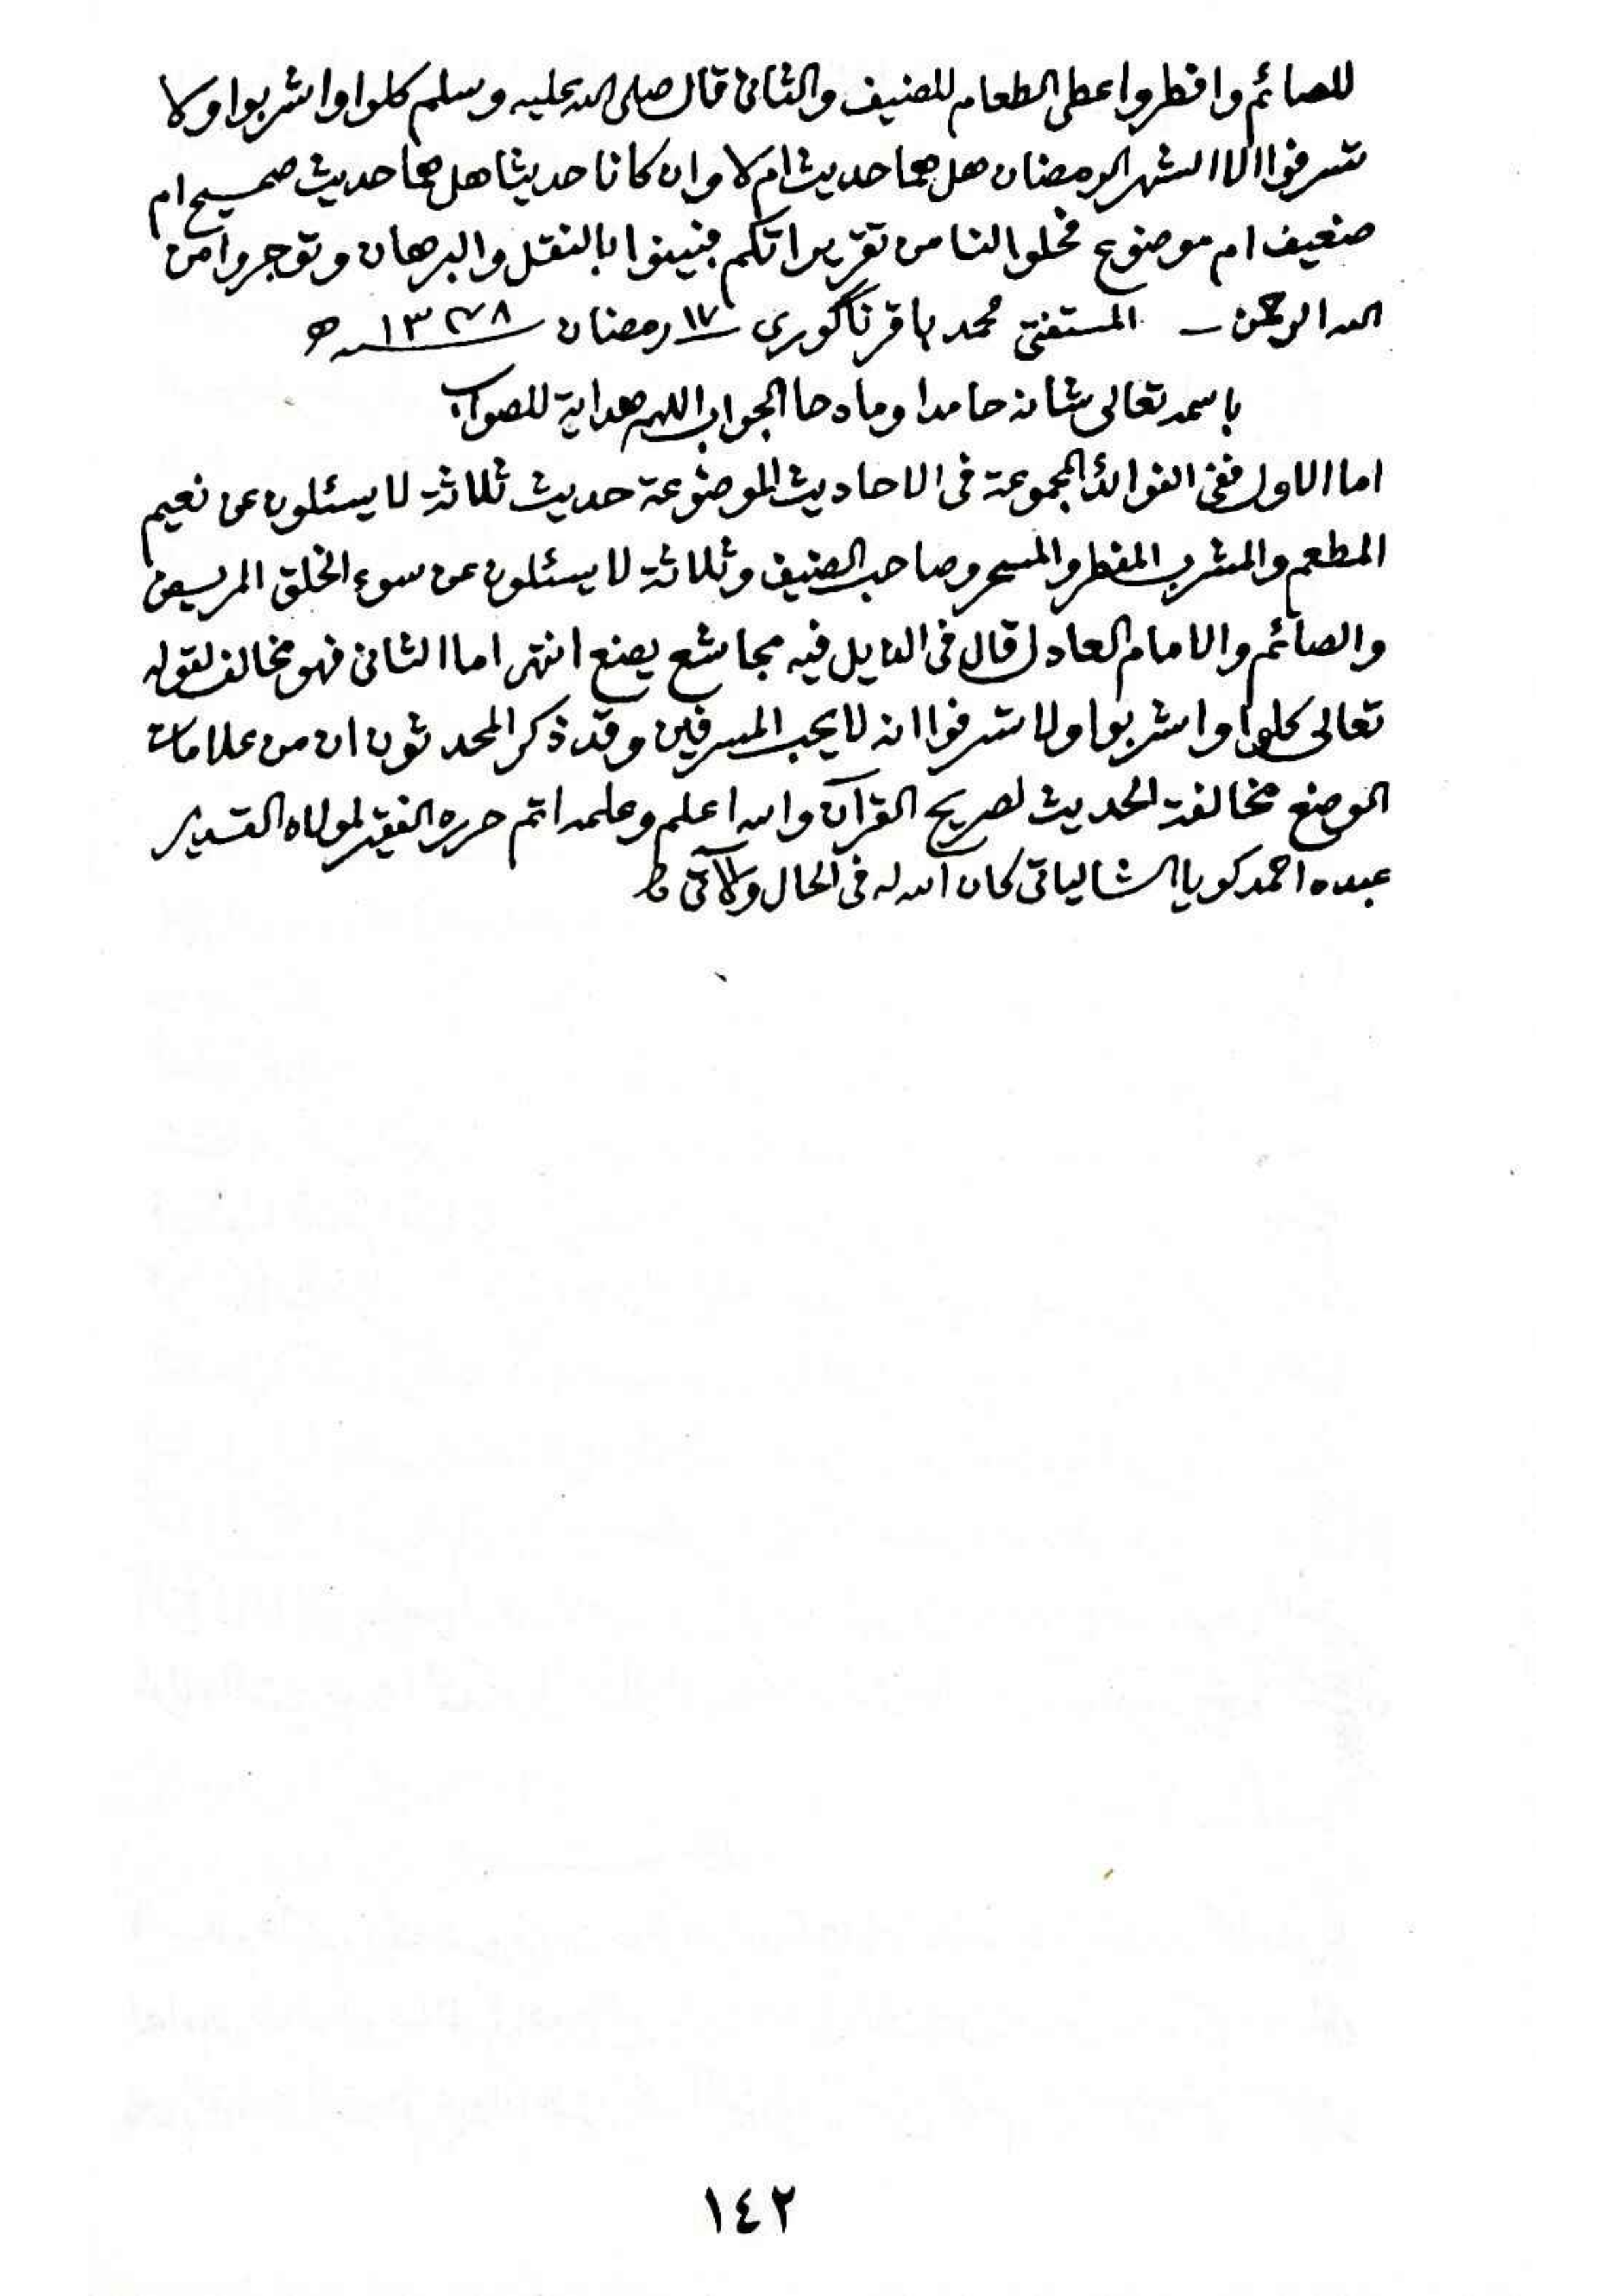 للصائم وافطر واعطى الطعام للضيف والثانى قال صلى الله عليه وسلم كلوا واشربوا ولا
تسرفوا الا الشهر الرمضان هل هما حديث ام لا وان كانا حديثا هل هما حديث صحيح ام
ضعيف ام موضوع فحلوا لنا من تقريراتكم فبينوا بالنقل والبرهان وتوجروا من
الله الرحمن – المستفتى محمد باقر ناگورى ١٧ رمضان ١٣٤٨ ھ
باسمه تعالى شانه حامدا ومادحا الجواب اللهم هداية للصواب
اما الاول ففى الفوائد المجموعة فى الاحاديث الموضوعة حديث ثلاثة لا يسئلون عن نعيم
المطعم والمشرب المفطر والمتسحر وصاحب الضيف وثلاثة لا يسئلون عن سوء الخلق المريض
والصائم والامام العادل قال فى الذيل فيه مجاشع يضع انتهى اما الثانى فهو مخالف لقوله
تعالى كلوا واشربوا ولا تسرفوا انه لا يحب المسرفين وقد ذكر المحدثون ان من علامات
الوضع مخالفة الحديث لصريح القرآن والله اعلم وعلمه اتم حرره الفقير لمولاه القدير
عبده احمد كويا الشالياتى كان الله له فى الحال والآتى ط
١٤٢